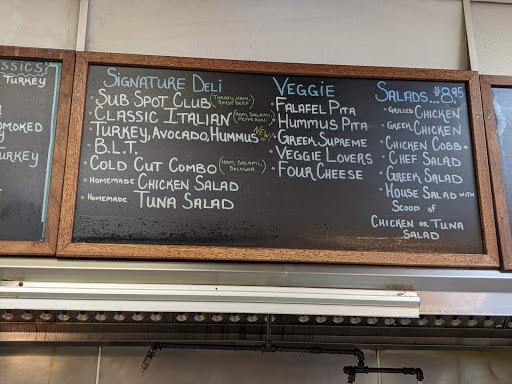 SSICS
TURKEY
SMOKED
TURKEY
SIGNATURE DELI
• SUB SPOT CLUB (TURKEY, HAM, ROAST BEEF)
• CLASSIC ITALIAN (HAM, SALAMI, PEPPERONI)
• TURKEY, AVOCADO, HUMMUS NEW!
• B.L.T.
• COLD CUT COMBO (HAM, SALAMI, BOLOGNA)
• HOMEMADE CHICKEN SALAD
• HOMEMADE TUNA SALAD
VEGGIE
• FALAFEL PITA
• HUMMUS PITA
• GREEK SUPREME
• VEGGIE LOVERS
• FOUR CHEESE
SALADS... $8.95
• GRILLED CHICKEN
• GREEK CHICKEN
• CHICKEN COBB
• CHEF SALAD
• GREEK SALAD
• HOUSE SALAD WITH
SCOOP OF
CHICKEN OR TUNA
SALAD